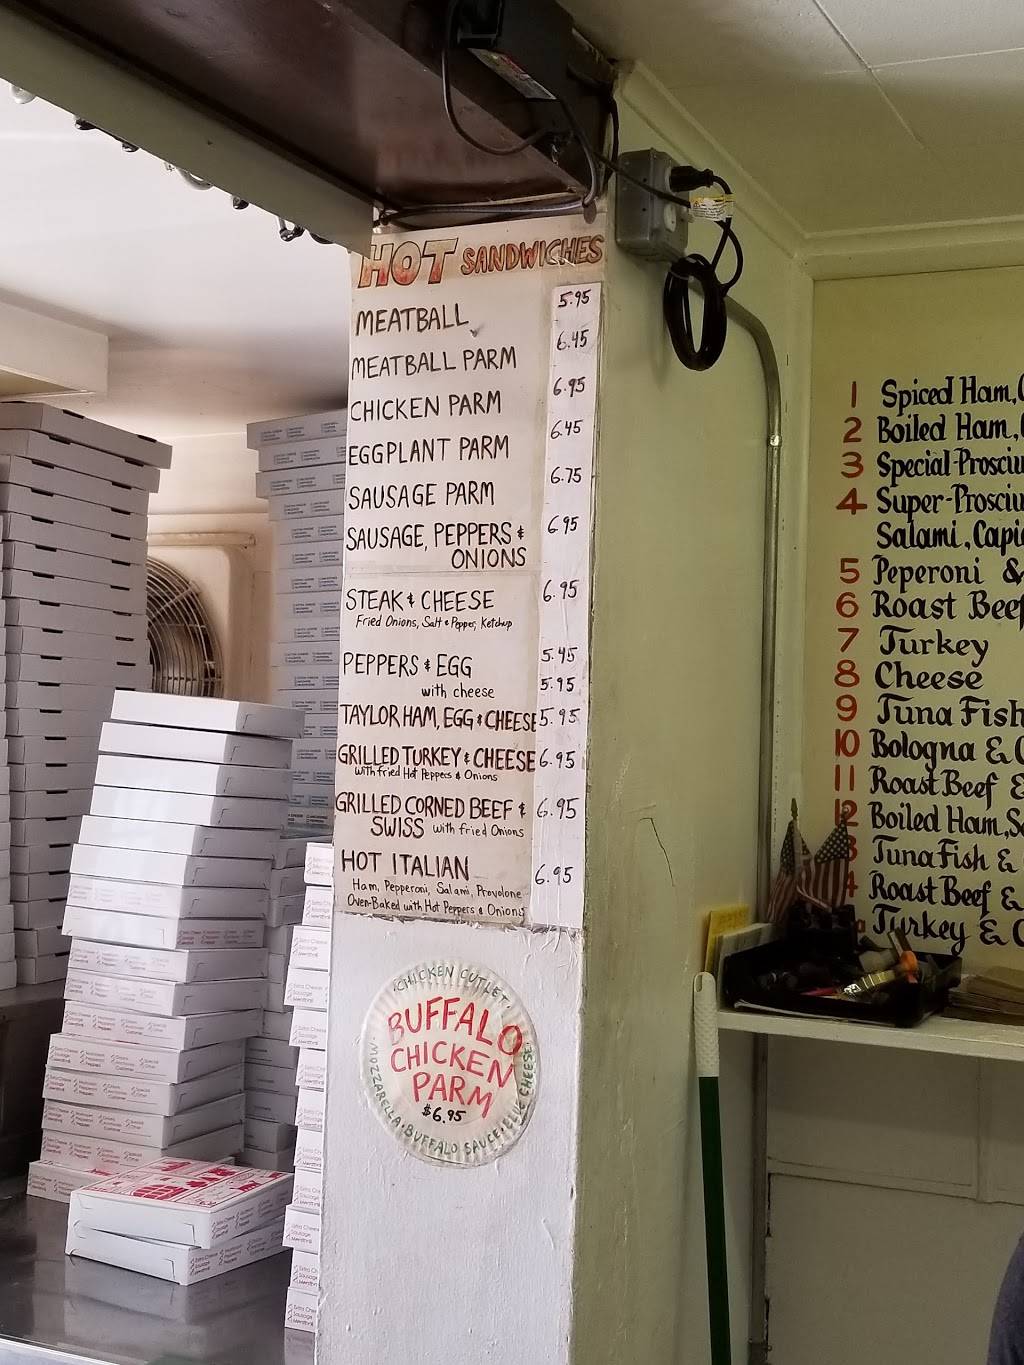 HOT SANDWICHES
MEATBALL 5.95
MEATBALL PARM 6.45
CHICKEN PARM 6.95
EGGPLANT PARM 6.45
SAUSAGE PARM 6.75
SAUSAGE, PEPPERS & 6.95
ONIONS
STEAK & CHEESE 6.95
Fried Onions, Salt & Pepper, Ketchup
PEPPERS & EGG 5.45
with cheese 5.95
TAYLOR HAM, EGG & CHEESE 5.95
GRILLED TURKEY & CHEESE 6.95
with fried Hot Peppers & Onions
GRILLED CORNED BEEF & 6.95
SWISS with fried Onions
HOT ITALIAN 6.95
Ham, Pepperoni, Salami, Provolone
Oven-Baked with Hot Peppers & Onions
CHICKEN CUTLET
BUFFALO
CHICKEN
PARM
$6.95
MOZZARELLA BUFFALO SAUCE BLUE CHEESE
1 Spiced Ham,
2 Boiled Ham,
3 Special-
4 Super-
Salami,
5 Peperoni &
6 Roast Beef
7 Turkey
8 Cheese
9 Tuna Fish
10 Bologna &
11 Roast Beef &
12 Boiled Ham,
Tuna Fish &
Roast Beef &
Turkey &
Extra Cheese
Sausage